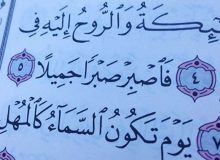 ئِكَةُ وَالرُّوحُ إِلَيْهِ فِى
٤ فَاصْبِرْ صَبْرًا جَمِيلًا ٥
يَوْمَ تَكُونُ السَّمَاءُ كَالْمُهْلِ